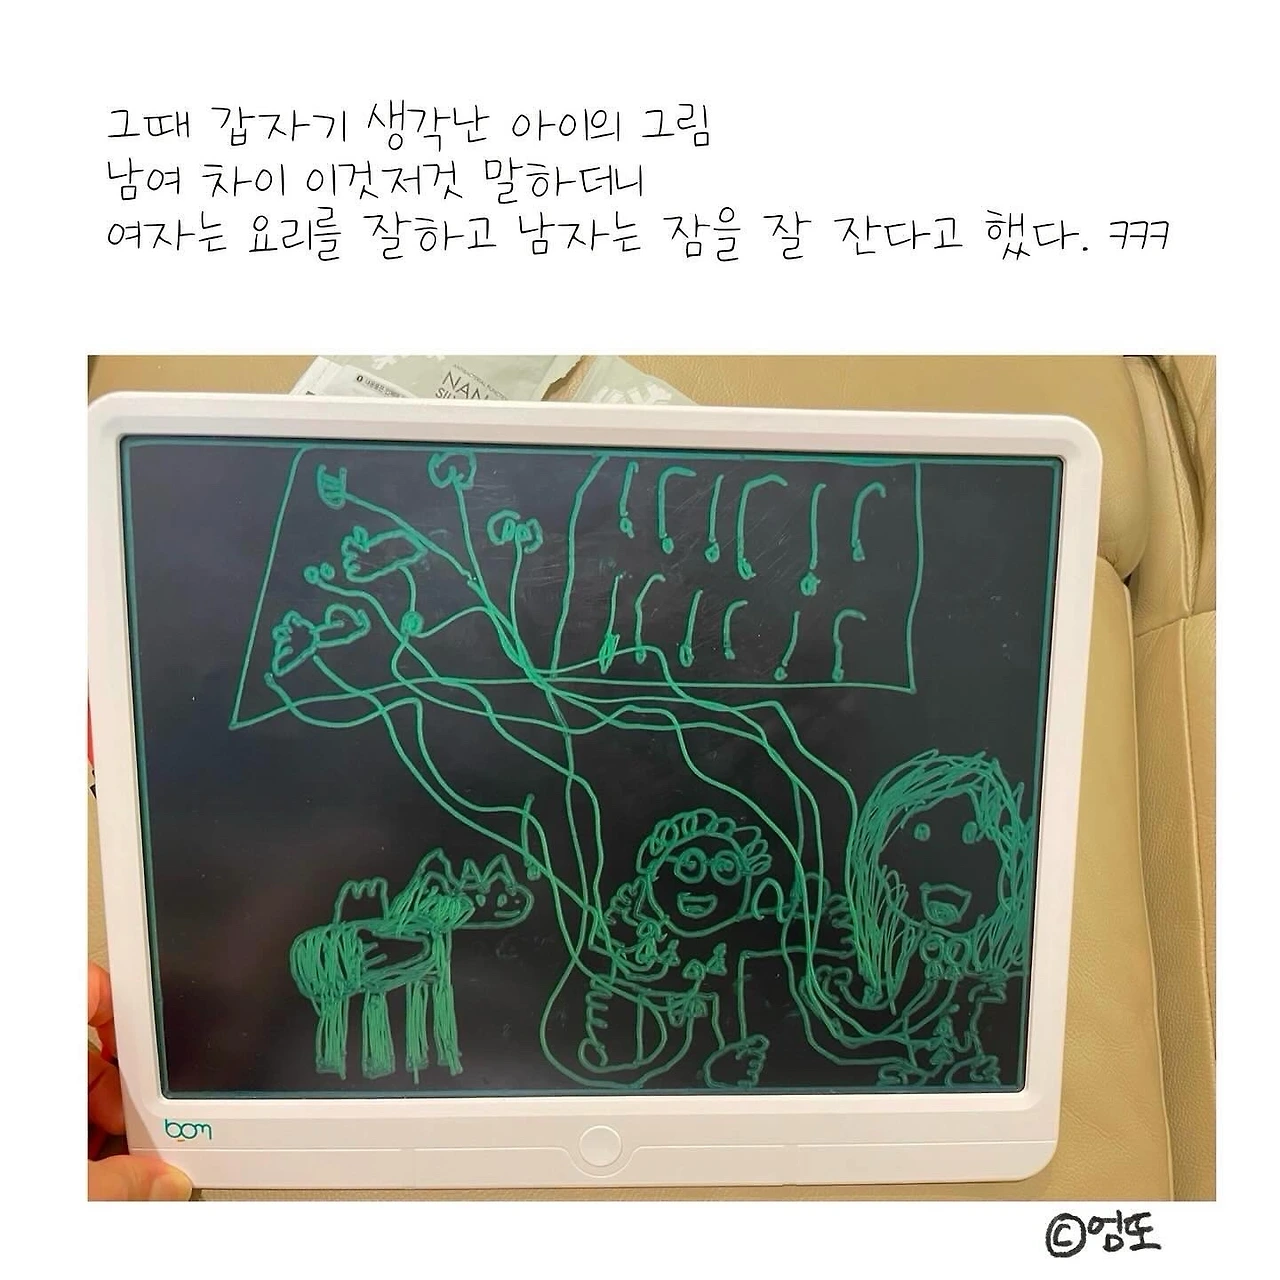 그때 갑자기 생각난 아이의 그림
남여 차이 이것저것 말하더니
여자는 요리를 잘하고 남자는 잠을 잘 잔다고 했다. ㅋㅋㅋ
NAN
bom
©엄또